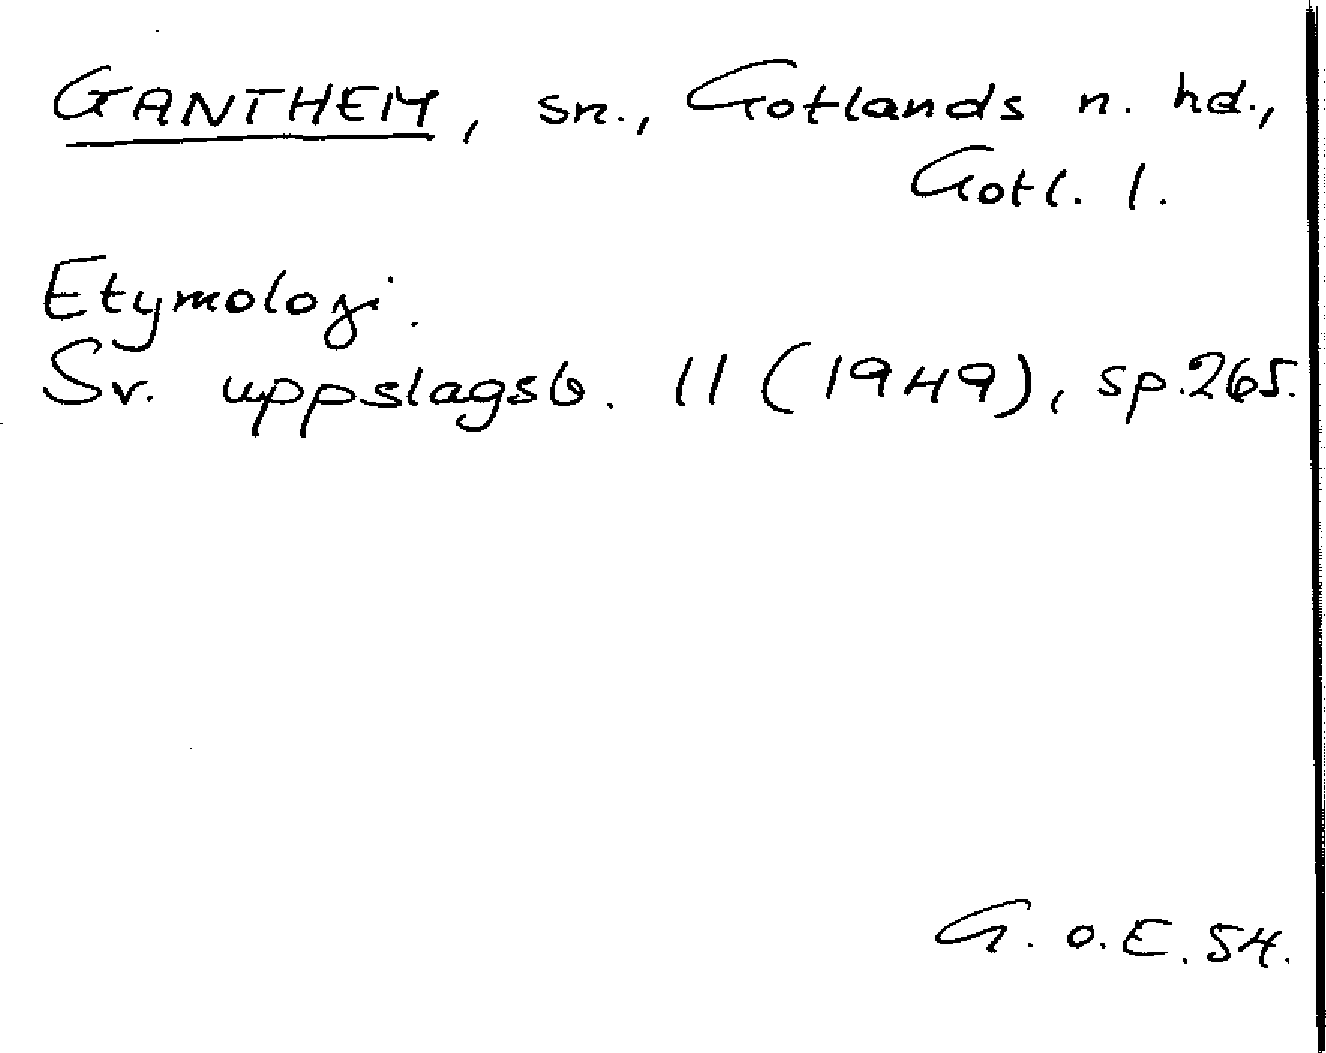 GANTHEM, sn., Gotlands n. hd.,
Gotl. l.
Etymologi.
Sv. uppslagsb. 11 (1949), sp. 265.
G. o. E. 54.